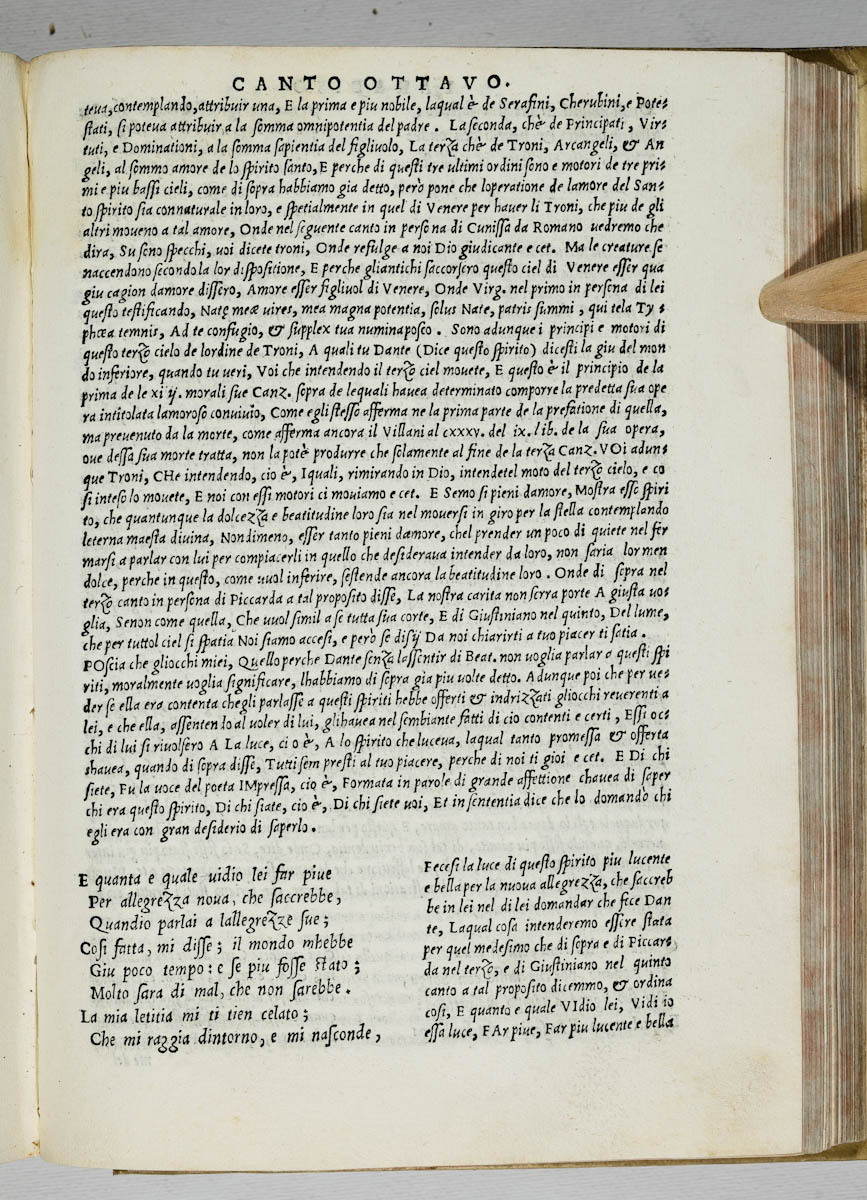 CANTO OTTAVO.
teua, contemplando, attribuir una, E la prima e piu nobile, laqual è de Serafini, Cherubini, e Pote-
stati, si poteua attribuir a la somma omnipotentia del padre. La seconda, ch'è de Principati, Vir-
tuti, e Dominationi, a la somma sapientia del figliuolo, La terza chè de Troni, Arcangeli, & An
geli, al sommo amore de lo spirito santo, E perche di questi tre ultimi ordini sono e motori de tre pri-
mi e piu bassi cieli, come di sopra habbiamo gia detto, però pone che loperatione de lamore del San-
to spirito sia connaturale in loro, e spetialmente in quel di Venere per hauer li Troni, che piu de gli
altri moueno a tal amore, Onde nel seguente canto in persona di Cunissa da Romano uedremo che
dira, Su sono specchi, uoi dicete troni, Onde refulge a noi Dio giudicante e cet. Ma le creature se
naccendono secondo la lor dispositione, E perche gliantichi saccorsero questo ciel di Venere esser qua
giu cagion damore dissero, Amore esser figliuol di Venere, Onde Virg. nel primo in persona di lei
questo testificando, Natę meæ uires, mea magna potentia, solus Nate, patris summi, qui tela Ty-
phœa temnis, Ad te confugio, & supplex tua numina posco. Sono adunque i principi e motori di
questo terzo cielo de lordine de Troni, A quali tu Dante (Dice questo spirito) dicesti la giu del mon
do inferiore, quando tu ueri, Voi che intendendo il terzo ciel mouete, E questo è il principio de la
prima de le xiiij. morali sue Canz. sopra de lequali hauea determinato comporre la predetta sua ope
ra intitolata lamoroso conuiuio, Come egli stesso afferma ne la prima parte de la prefatione di quella,
ma preuenuto da la morte, come afferma ancora il Villani al cxxxv. del ix. lib. de la sua opera,
oue dessa sua morte tratta, non la potè produrre che solamente al fine de la terza Canz. VOi adun-
que Troni, CHe intendendo, cio è, Iquali, rimirando in Dio, intendetel moto del terzo cielo, e co
si inteso lo mouete, E noi con essi motori ci mouiamo e cet. E Semo si pieni damore, Mostra esso spiri
to, che quantunque la dolcezza e beatitudine loro sia nel mouersi in giro per la stella contemplando
leterna maesta diuina, Nondimeno, esser tanto pieni damore, chel prender un poco di quiete nel fer
marsi a parlar con lui per compiacerli in quello che desideraua intender da loro, non saria lor men
dolce, perche in questo, come uuol inferire, sestende ancora la beatitudine loro. Onde di sopra nel
terzo canto in persona di Piccarda a tal proposito disse, La nostra carita non serra porte A giusta uo-
glia, Senon come quella, Che uuol simil a se tutta sua corte, E di Giustiniano nel quinto, Del lume,
che per tuttol ciel si spatia Noi siamo accesi, e però se disij Da noi chiarirti a tuo piacer ti satia.
POscia che gliocchi miei, Quello perche Dante senza lassentir di Beat. non uoglia parlar a questi spi
riti, moralmente uoglia significare, lhabbiamo di sopra gia piu uolte detto. Adunque poi che per ue-
der se ella era contenta chegli parlasse a questi spiriti hebbe offerti & indrizzati gliocchi reuerenti a
lei, e che ella, assentendo al uoler di lui, glihauea nel sembiante fatti di cio contenti e certi, Essi oc-
chi di lui si riuolsero A La luce, cio è, A lo spirito che luceua, laqual tanto promessa & offerta
shauea, quando di sopra disse, Tutti sem presti al tuo piacere, perche di noi ti gioi e cet. E Di chi
siete, Fu la uoce del poeta IMpressa, cio è, Formata in parole di grande affettione chauea di saper
chi era questo spirito, Di chi siate, cio è, Di chi siete uoi, Et in sententia dice che lo domandò chi
egli era con gran desiderio di saperlo.
E quanta e quale uidio lei far piue
Per allegrezza noua, che saccrebbe,
Quandio parlai a lallegrezze sue;
Cosi fatta, mi disse; il mondo mhebbe
Giu poco tempo: e se piu fosse stato;
Molto sara di mal, che non sarebbe.
La mia letitia mi ti tien celato;
Che mi raggia dintorno, e mi nasconde,
Fecesi la luce di questo spirito piu lucente
e bella per la nuoua allegrezza, che saccreb
be in lei nel di lei domandar che fece Dan
te, Laqual cosa intenderemo essire stata
per quel medesimo che di sopra e di Piccar-
da nel terzo, e di Giustiniano nel quinto
canto a tal proposito dicemmo, & ordina
cosi, E quanto e quale VIdio lei, Vidi io
essa luce, FAr piue, Far piu lucente e bella